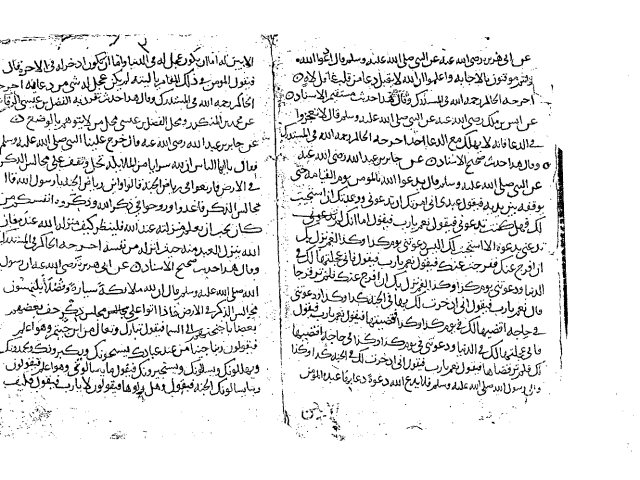 عن ابي هريرة رضي الله عنه عن النبي صلى الله عليه وسلم قال ادعوا الله
وانتم موقنون بالاجابة واعلموا ان الله لا يقبل دعا من قلب غافل لاه
اخرجه الحاكم رحمه الله في المستدرك وقال هذا حديث مستقيم الاسناد
عن انس بن مالك رضي الله عنه عن النبي صلى الله عليه وسلم قال لا تعجزوا
في الدعا فانه لا يهلك مع الدعا احد اخرجه الحاكم رحمه الله في المستدرك
وقال هذا حديث صحيح الاسناد عن جابر بن عبد الله رضي الله عنه
عن النبي صلى الله عليه وسلم قال يدعوا الله بالمومن يوم القيامة حتى
يوقفه بين يديه فيقول عبدي اني امرتك ان تدعوني ووعدتك ان استجيب
لك فهل كنت تدعوني فيقول نعم يارب فيقول اما انك لم تدعوني
بدعوة الا استجبت لك اليس دعوتني يوم كذا وكذا لغم نزل بك
ان افرج عنك ففرجت عنك فيقول نعم يارب فيقول اني عجلتها لك في
الدنيا ودعوتني يوم كذا وكذا لغم نزل بك ان افرج عنك فلم تر فرجا
قال نعم يارب فيقول اني ادخرت لك بها في الجنة كذا وكذا ودعوتني
في حاجة اقضيها لك في يوم كذا وكذا فقضيتها فيقول نعم يارب فيقول
فاني عجلتها لك في الدنيا ودعوتني في يوم كذا وكذا في حاجة اقضيها
لك فلم تر قضاها فيقول نعم يارب فيقول اني ادخرت لك في الجنة كذا وكذا
قال رسول الله صلى الله عليه وسلم فلا يدع الله دعوة دعا بها عبده المومن
الا بين له اما ان يكون عجل له في الدنيا واما ان يكون ادخر له في الاخرة قال
فيقول المومن في ذلك المقام ياليته لم يكن عجل له شي من دعائه اخرجه
الحاكم رحمه الله في المستدرك وقال هذا حديث تفرد به الفضل بن عيسى الرقاشي
عن محمد بن المنكدر ومحل الفضل بن عيسى محل من لا يتوهم بالوضع
عن جابر بن عبد الله رضي الله عنه قال خرج علينا النبي صلى الله عليه وسلم
فقال يا ايها الناس ان لله سرايا من الملائكة تحل وتقف على مجالس الذكر
في الارض فارتعوا في رياض الجنة قالوا واين رياض الجنة يا رسول الله قال
مجالس الذكر فاغدوا وروحوا في ذكر الله وذكروه انفسكم من
كان يحب ان يعلم منزلته عند الله فلينظر كيف منزلة الله عنده فان
الله ينزل العبد منه حيث انزله من نفسه اخرجه الحاكم في المستدرك
وقال هذا حديث صحيح الاسناد عن ابي هريرة رضي الله عنه ان رسول
الله صلى الله عليه وسلم قال ان لله ملائكة سيارة وفضلا يلتمسون
مجالس الذكر في الارض فاذا اتوا على مجلس ذكر حف بعضهم
بعضا باجنحتهم الى السما فيقول تبارك وتعالى من اين جيتم وهو اعلم
فيقولون ربنا جينا من عند عبادك يسبحونك ويكبرونك ويحمدونك
ويهللونك ويسالونك ويستجيرونك فيقول ما يسالوني وهو اعلم فيقولون
ربنا يسالونك الجنة فيقول وهل راوها فيقولون لا يارب فيقول فكيف